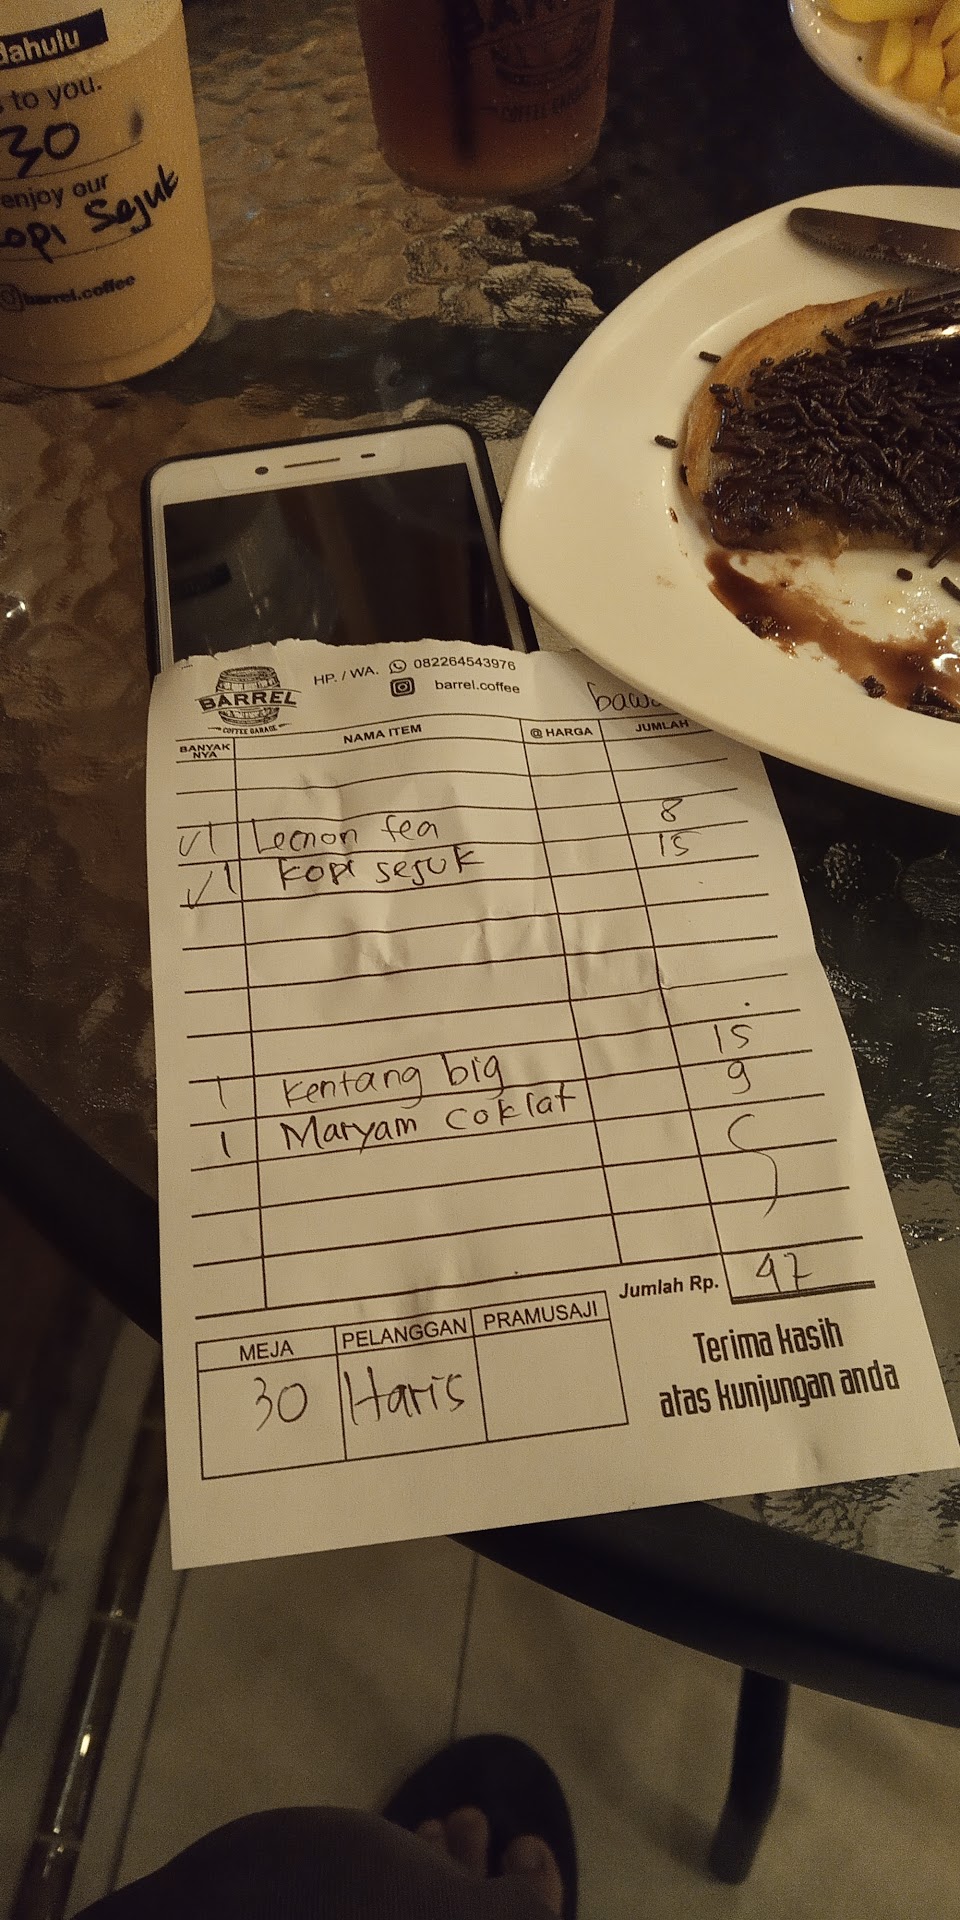 dahulu
to you.
30
enjoy our
kopi Sejuk
barrel.coffee
COFFEE
BARREL
COFFEE GARAGE
HP. / WA. 082264543976
barrel.coffee
BANYAK NYA NAMA ITEM @ HARGA JUMLAH
√1 Lemon tea 8
√1 kopi sejuk 15
1 Kentang big 15
1 Maryam coklat 9
Jumlah Rp. 47
MEJA PELANGGAN PRAMUSAJI
30 Haris
Terima kasih
atas kunjungan anda